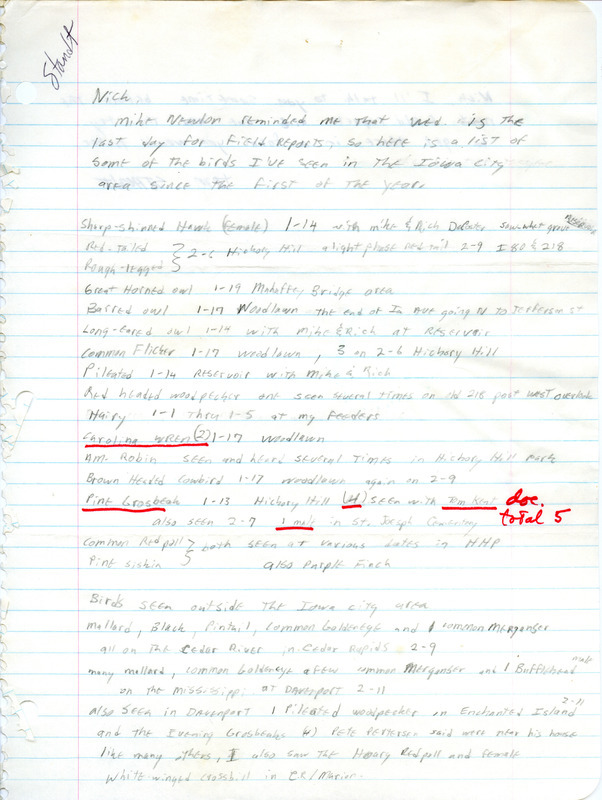 Standt
Nick
Mike Newlon reminded me that Wed. is the
last day for Field Reports so here is a list of
some of the birds I've seen in the Iowa City
area since the first of the year.
Sharp-shinned Hawk (female) 1-14 with mike & Rich DeCoster somewhat grove Reservoir
Red-tailed
Rough-legged } 2-6 Hickory Hill a light phase red tail 2-9 I 80 & 218
Great Horned owl 1-19 Mahaffey Bridge area
Barred owl 1-17 Woodlawn the end of Ia Ave going N to Jefferson St
Long-Eared owl 1-14 with Mike & Rich at Reservoir
Common Flicker 1-17 Woodlawn, 3 on 2-6 Hickory Hill
Pileated 1-14 Reservoir with Mike & Rich
Red headed woodpecker one seen several times on old 218 past west overlook
Hairy 1-1 thru 1-5 at my feeders
Carolina WREN (2) 1-17 Woodlawn
Am. Robin seen and heard several times in Hickory Hill Park
Brown Headed Cowbird 1-17 Woodlawn again on 2-9
Pine Grosbeak 1-13 Hickory Hill (4) seen with Tom Kent doc.
also seen 2-7 1 male in St. Joseph Cemetery total 5
Common Redpoll
Pine siskin } both seen at various dates in HHP
also Purple Finch
Birds seen outside the Iowa City area
Mallard, Black, Pintail, Common Goldeneye and 1 common Merganser
all on the Cedar River in Cedar Rapids 2-9
many mallard, common Goldeneye a few common Merganser and 1 Bufflehead male
on the Mississippi at Davenport 2-11
also seen in Davenport 1 Pileated woodpecker on Enchanted Island 2-11
and the Evening Grosbeaks (4) Pete Petersen said were near his house
like many others, I also saw the Hoary Redpoll and female
White-winged Crossbill in C.R./Marion.